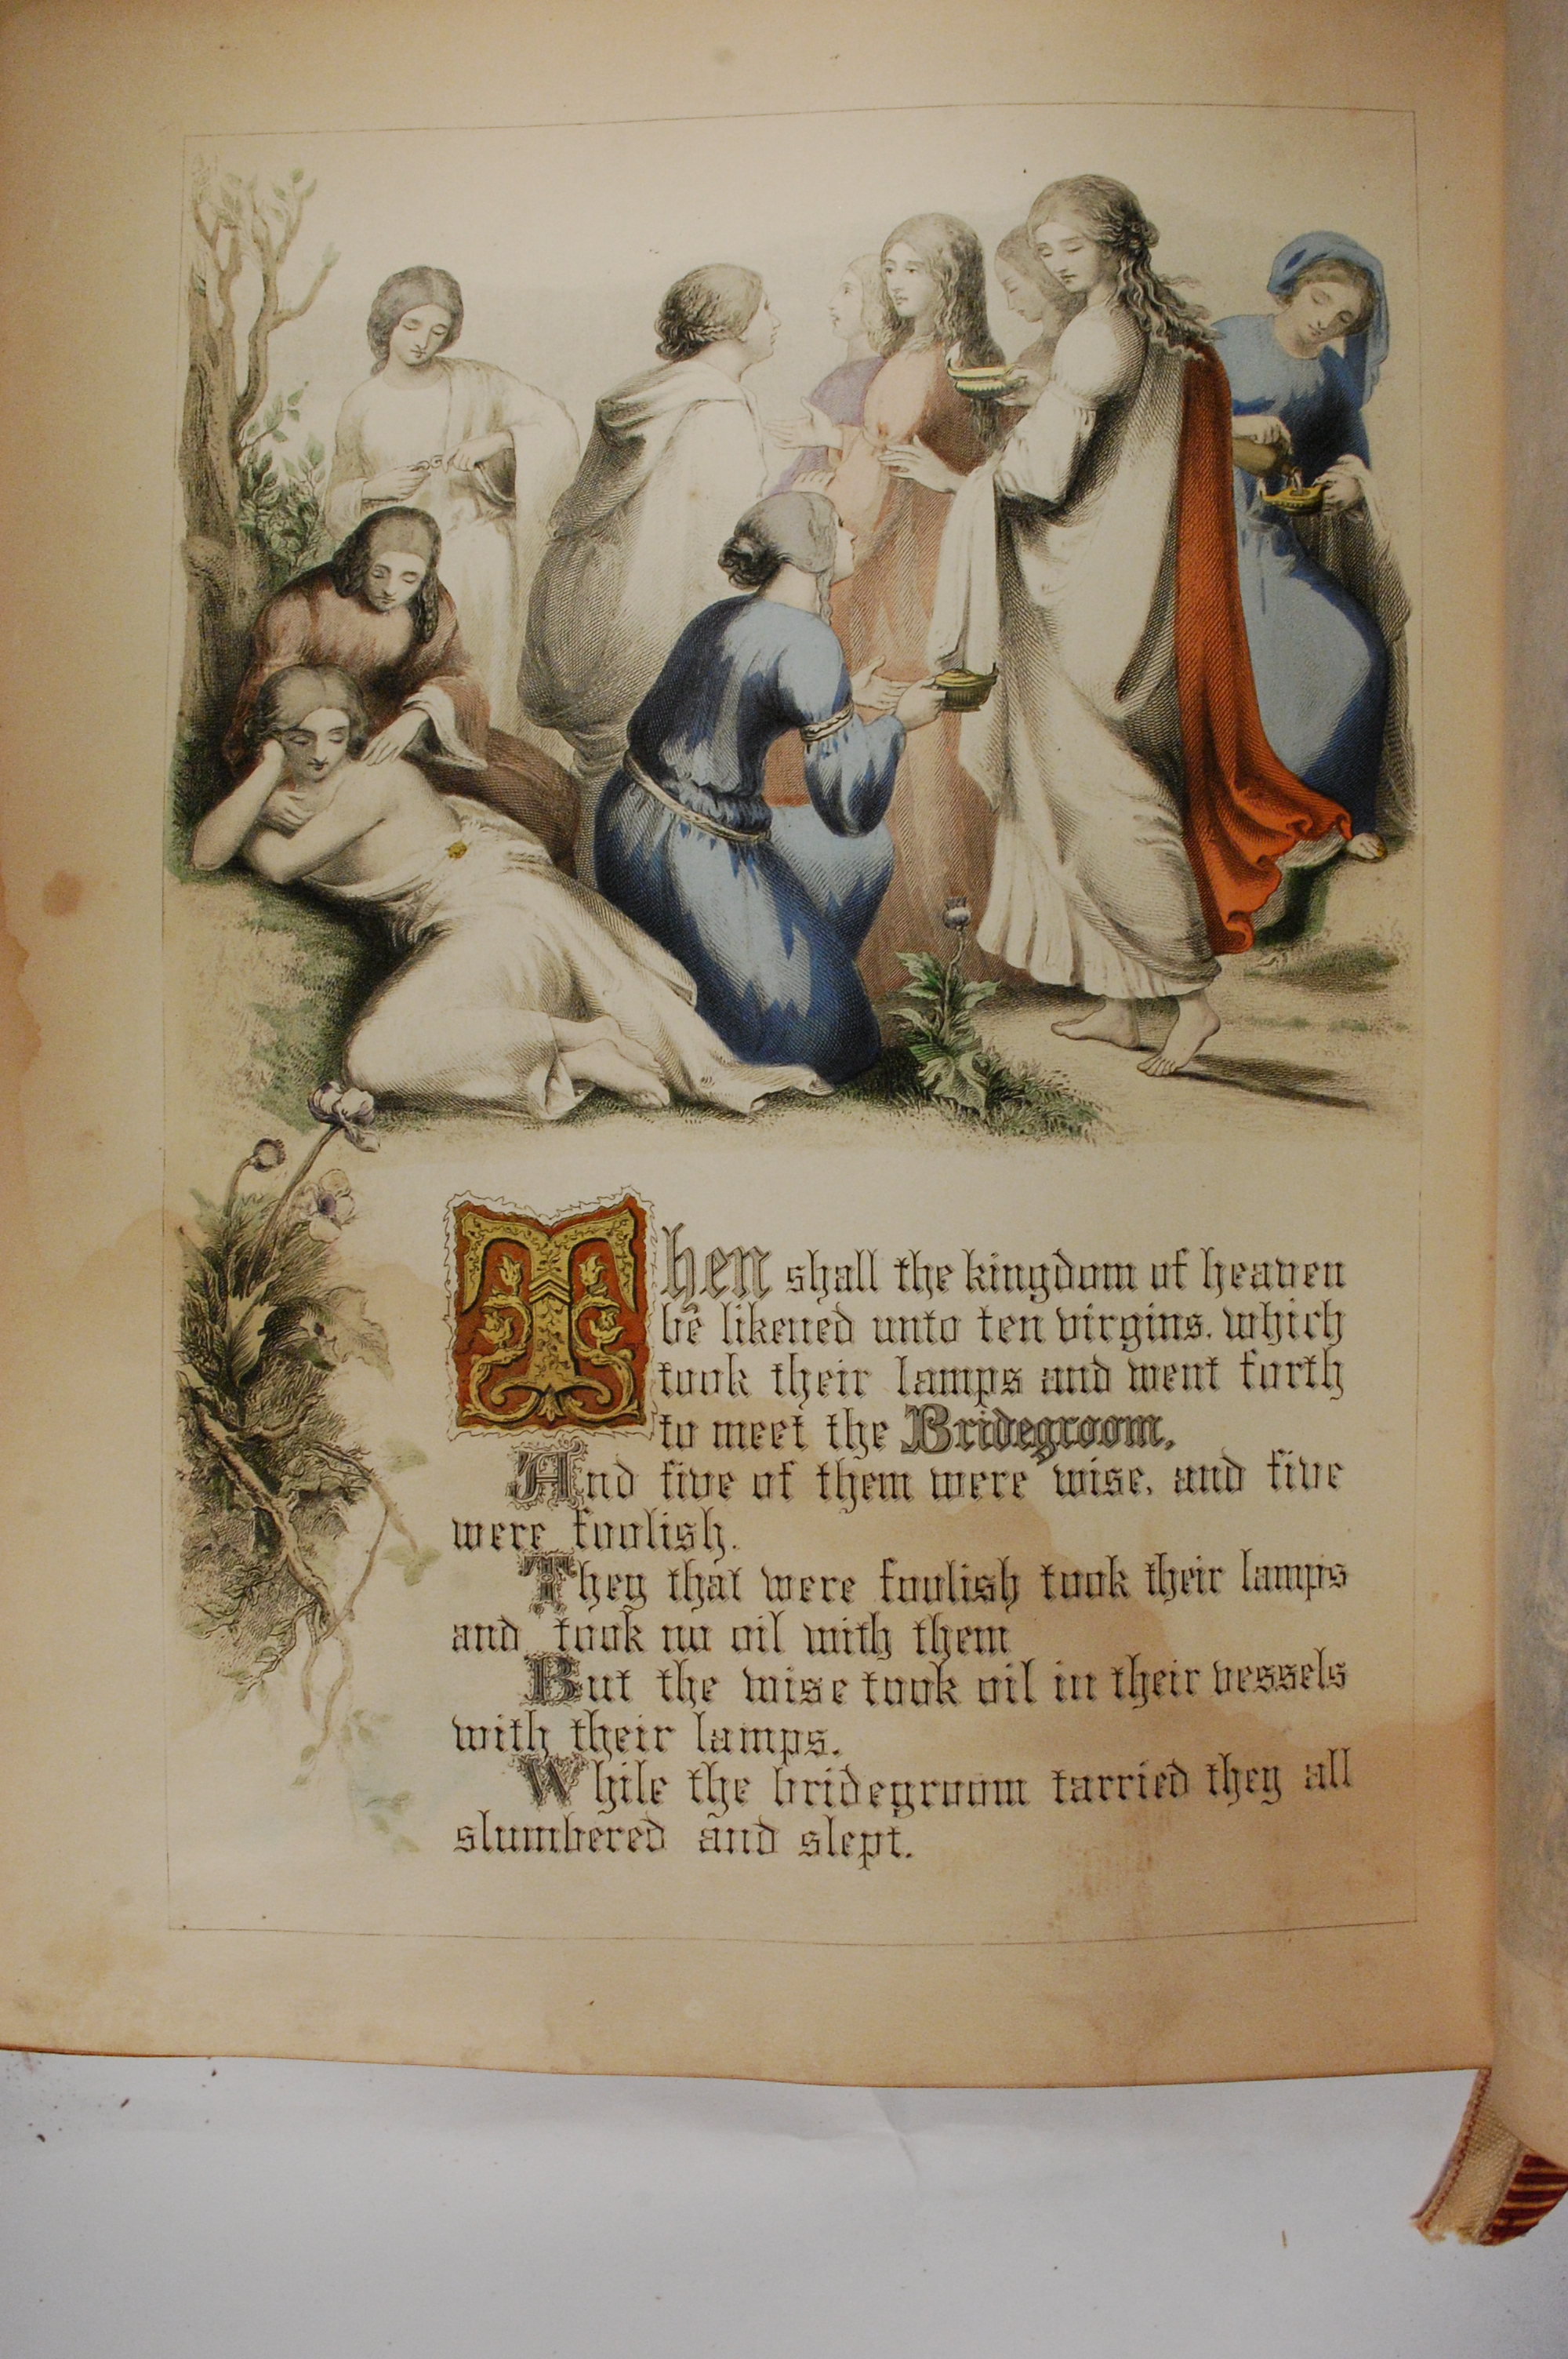 Then shall the kingdom of heaven
be likened unto ten virgins. which
took their lamps and went forth
to meet the Bridegroom.
And five of them were wise. and five
were foolish.
They that were foolish took their lamps
and took no oil with them
But the wise took oil in their vessels
with their lamps.
While the bridegroom tarried they all
slumbered and slept.